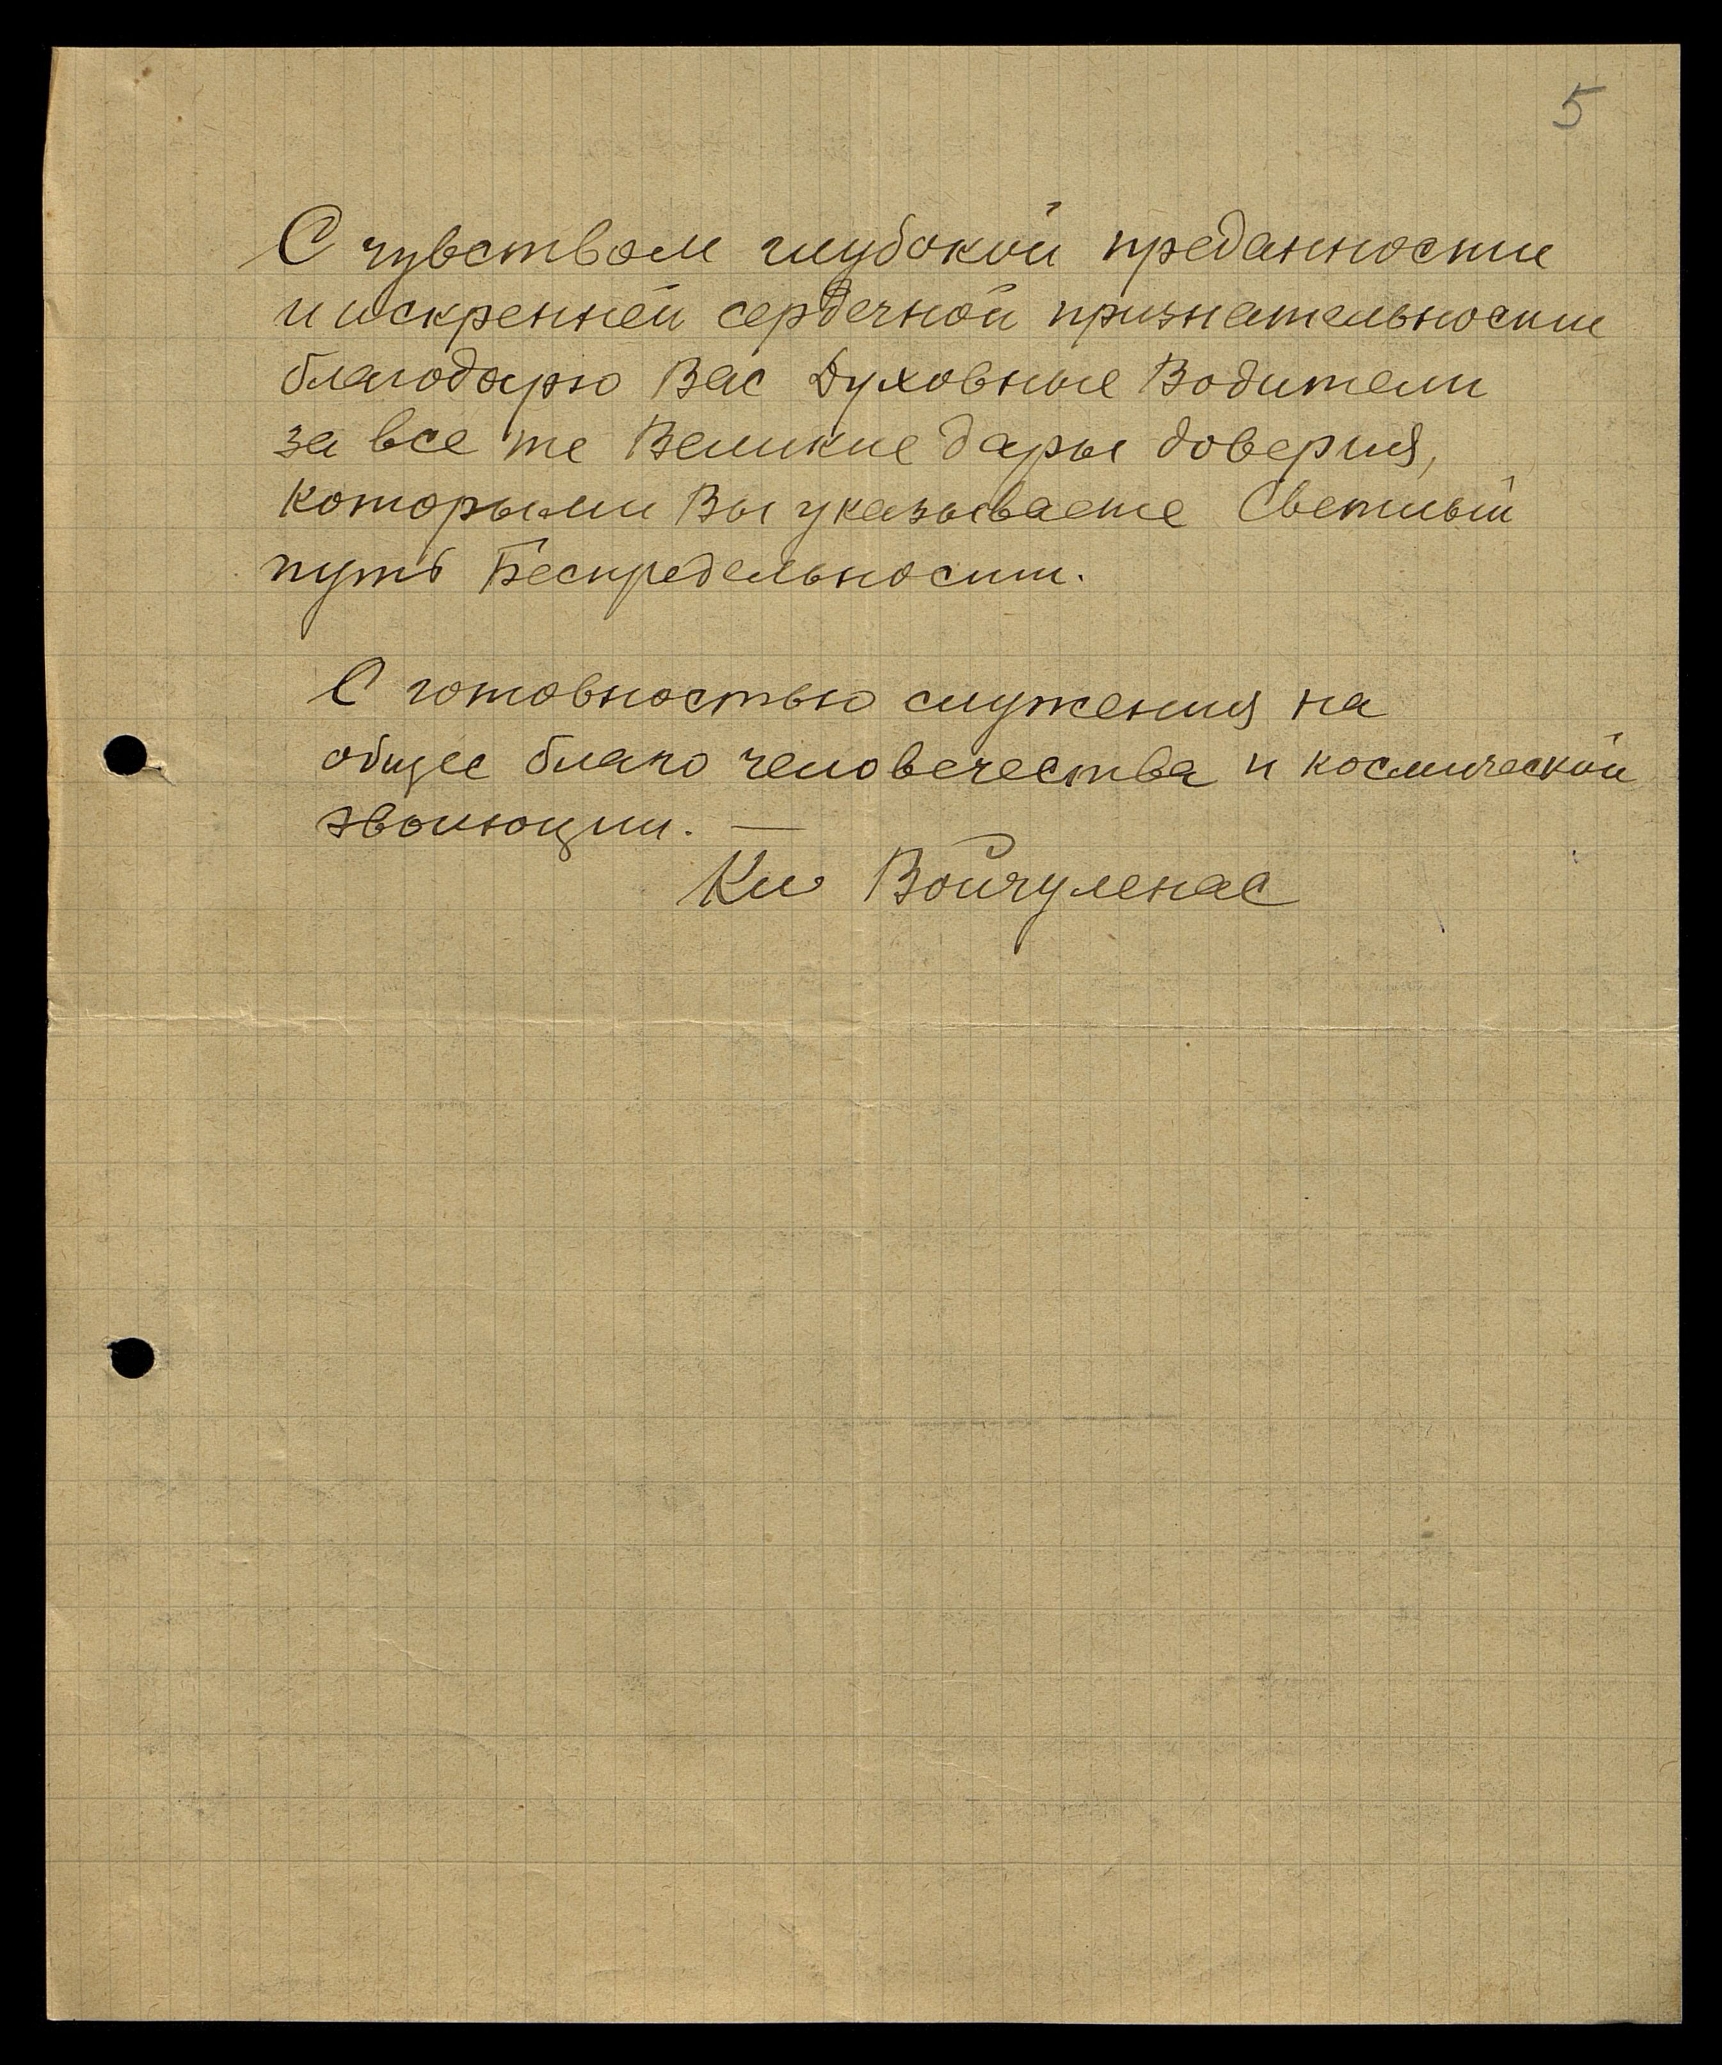 5
С чувством глубокой преданности
и искренней сердечной признательности
благодарю Вас Духовные Водители
за все те Великие дары доверия,
которыми Вы указываете Светлый
путь Беспредельности.
С готовностью служения на
общее благо человечества и космической
эволюции. —
Юл Войчуленас